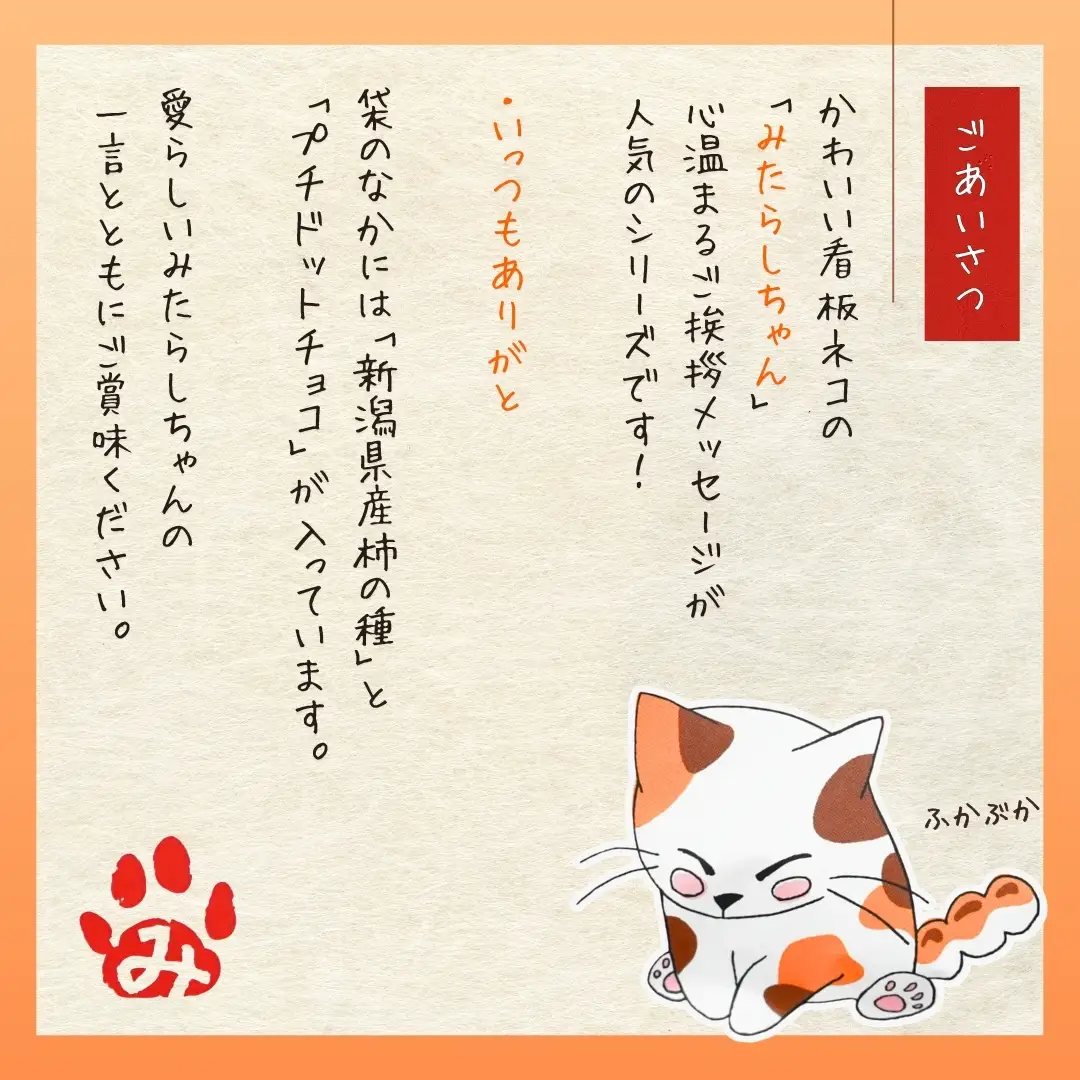 ごあいさつ
かわいい看板ネコの
「みたらしちゃん」
心温まるご挨拶メッセージが
人気のシリーズです!
・いっつもありがと
袋のなかには「新潟県産柿の種」と
「プチドットチョコ」が入っています。
愛らしいみたらしちゃんの
一言とともにご賞味ください。
ふかぶか
み